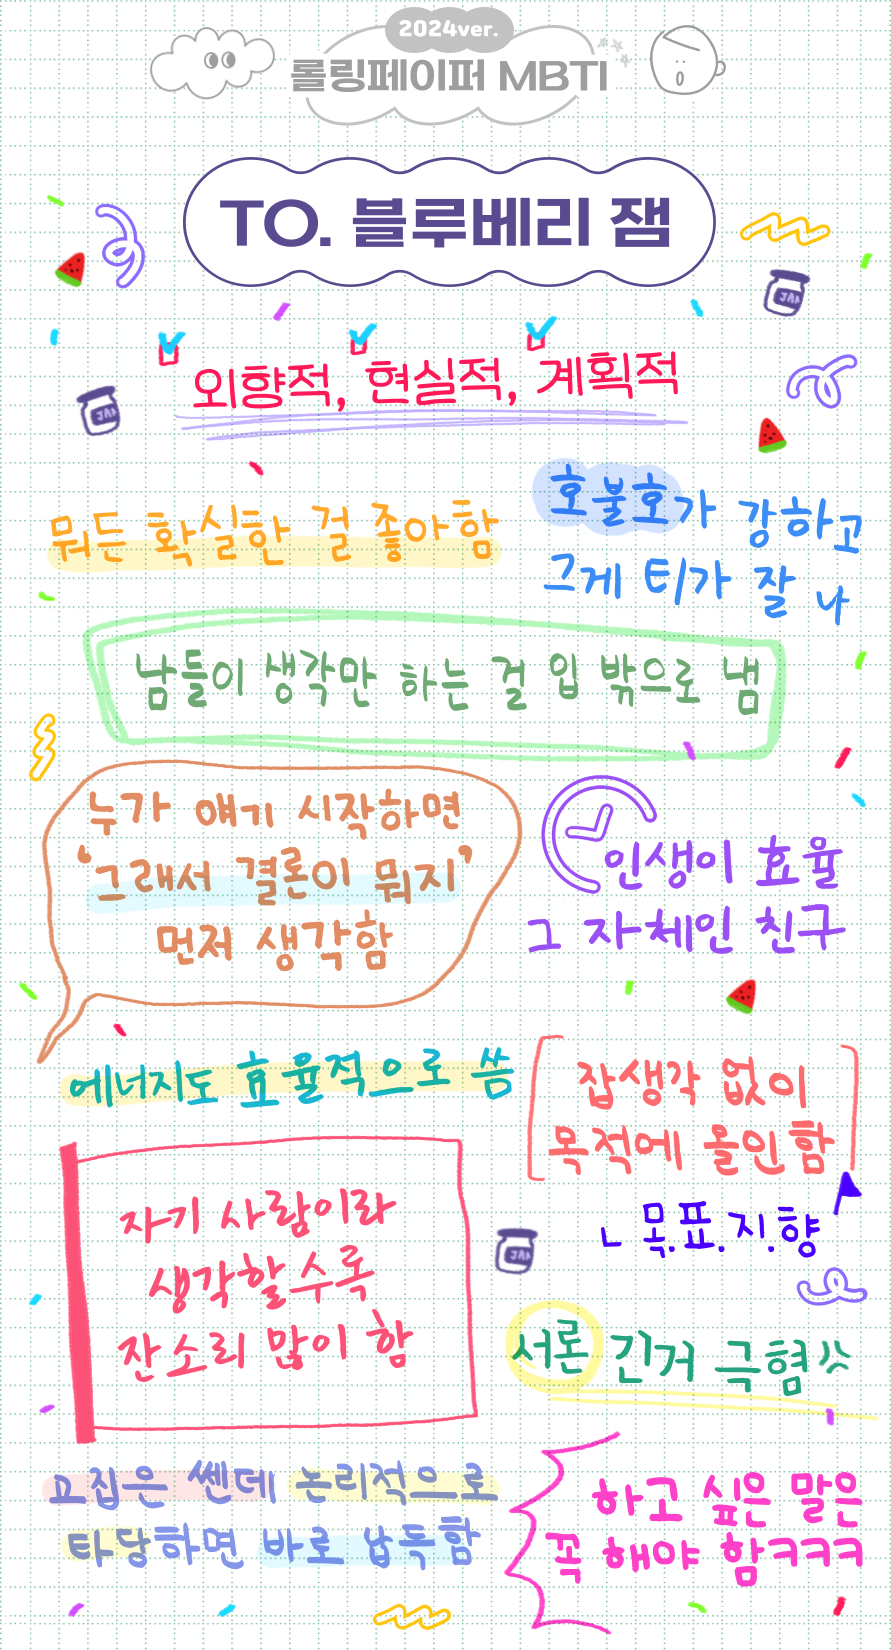 2024ver.
롤링페이퍼 MBTI
TO. 블루베리 잼
외향적, 현실적, 계획적
JAM
JAM
뭐든 확실한 걸 좋아함
호불호가 강하고
그게 티가 잘 나
남들이 생각만 하는 걸 입 밖으로 냄
누가 얘기 시작하면
'그래서 결론이 뭐지'
먼저 생각함
인생이 효율
그 자체인 친구
에너지도 효율적으로 씀
잡생각 없이
목적에 올인함
ㄴ 목.표.지.향
자기 사람이라
생각할수록
잔소리 많이 함
JAM
서론 긴거 극혐
고집은 쎈데 논리적으로
타당하면 바로 납득함
하고 싶은 말은
꼭 해야 함ㅋㅋㅋ